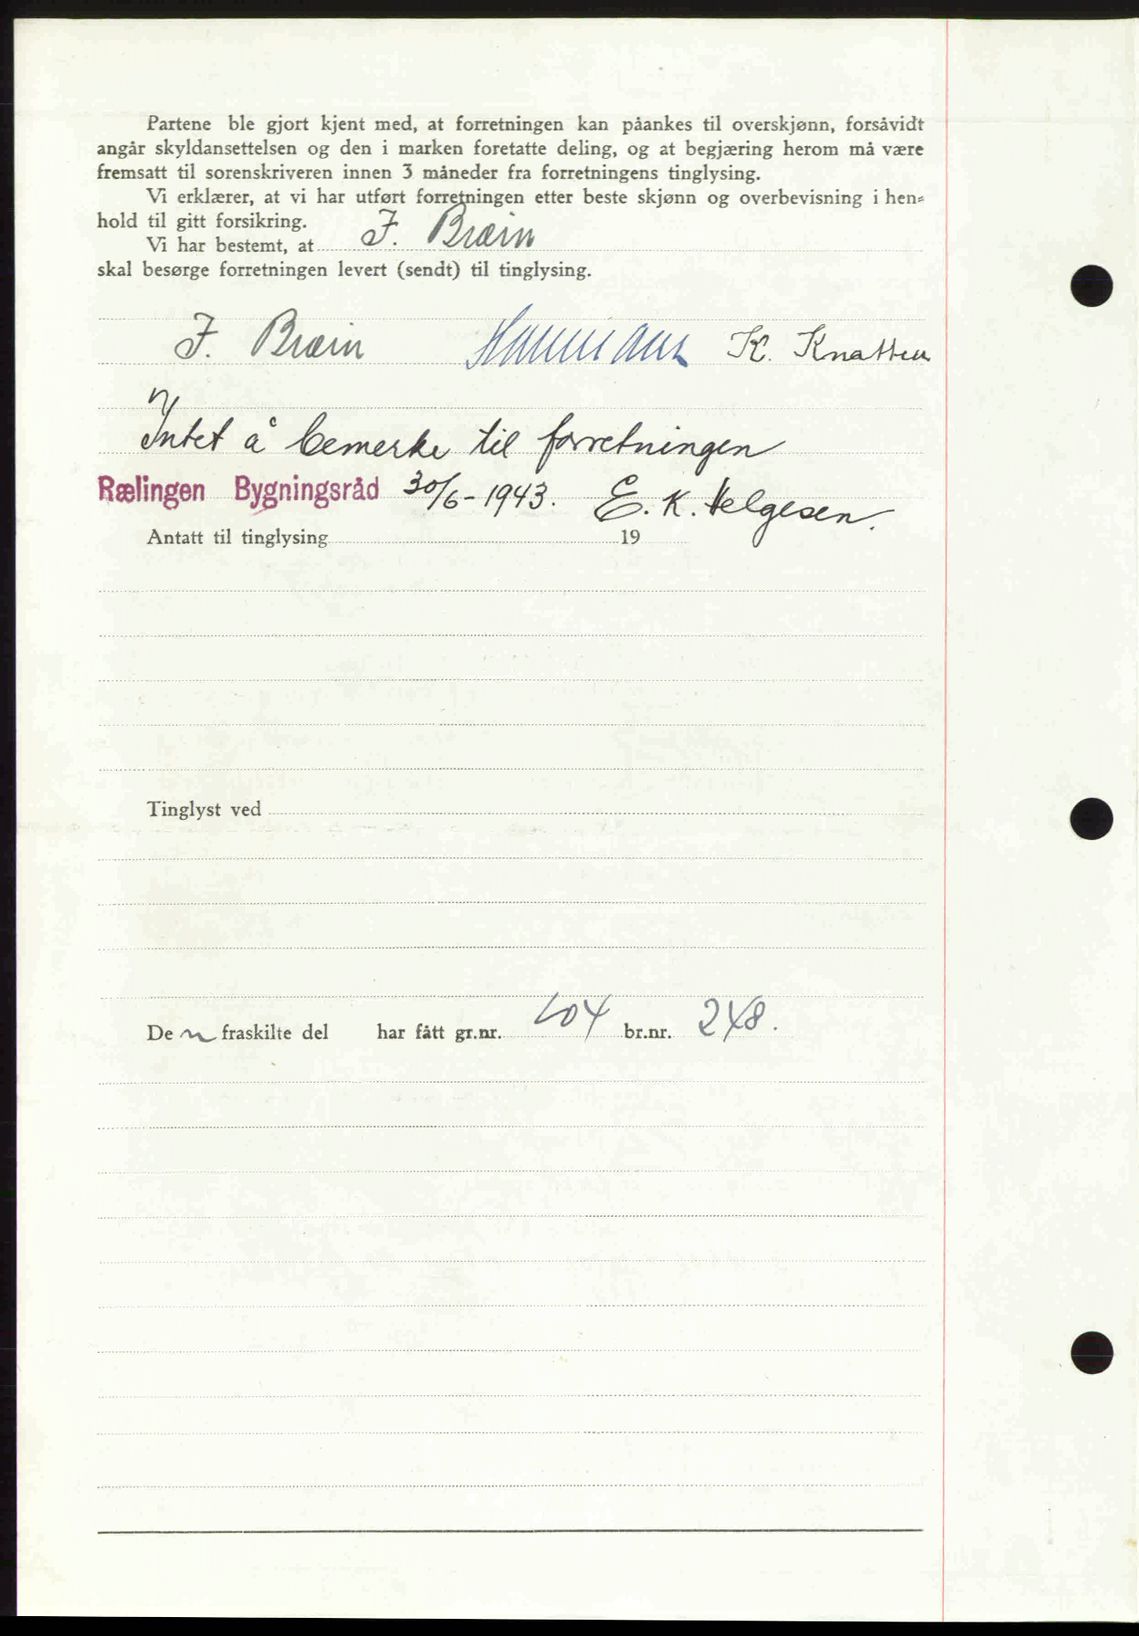 Partene ble gjort kjent med, at forretningen kan påankes til overskjønn, forsåvidt
angår skyldansettelsen og den i marken foretatte deling, og at begjæring herom må være
fremsatt til sorenskriveren innen 3 måneder fra forretningens tinglysing.
Vi erklærer, at vi har utført forretningen etter beste skjønn og overbevisning i hen=
hold til gitt forsikring.
Vi har bestemt, at J. Bræin
skal besørge forretningen levert (sendt) til tinglysing.
J. Bræin K. Knatten
Intet å bemerke til forretningen
Rælingen Bygningsråd 30/6-1943. E. K. Helgesen.
Antatt til tinglysing 19
Tinglyst ved
De n fraskilte del har fått gr.nr. 104 br.nr. 248.